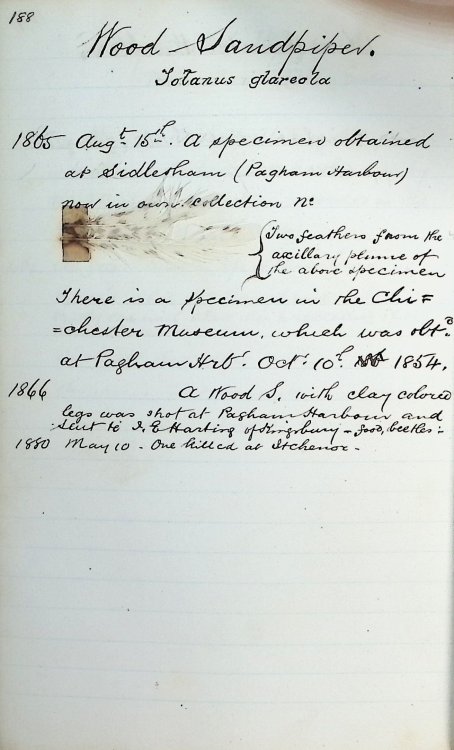 188
Wood Sandpiper.
Totanus glareola
1865 Augt. 15th. A specimen obtained
at Sidlesham (Pagham Harbour)
now in own collection No
{Two feathers from the
axillary plume of
the above specimen
There is a specimen in the Chi=
=chester Museum, which was obtd.
at Pagham Hrbr. Oct. 10th. 1854.
1866 A Wood S. with clay colored
legs was shot at Pagham Harbour and
sent to J. E Harting of Kingsbury - food, beetles -
1880 May 10 - One killed at Itchenor -